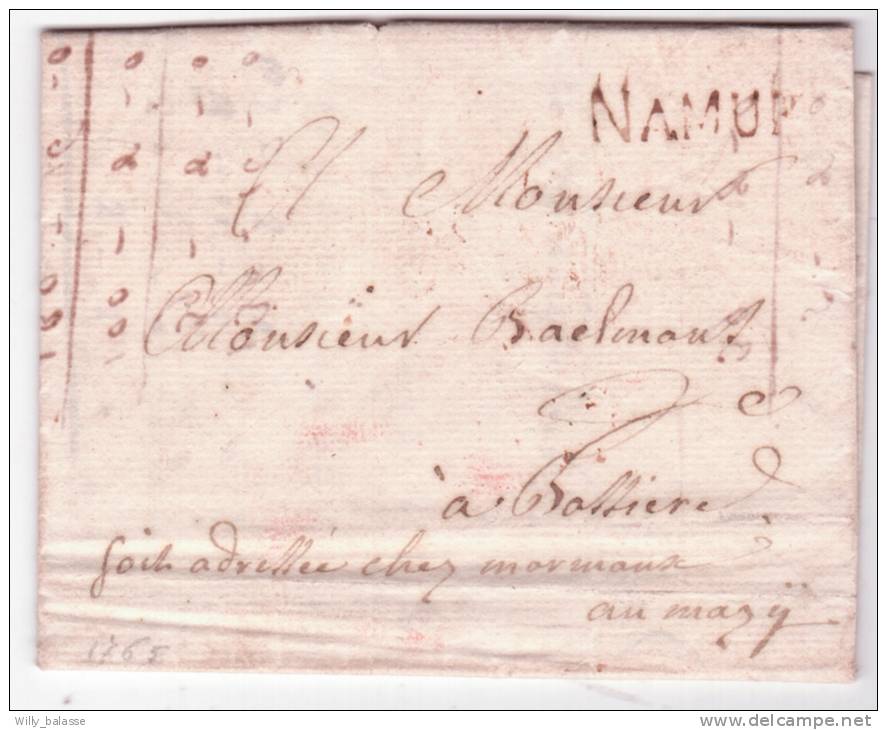 NAMUR
A Monsieur
Monsieur Baelmont
à Bossiere
soit adressée chez mormaux
au mazÿ
1765
Willy_balasse
delcampe.net